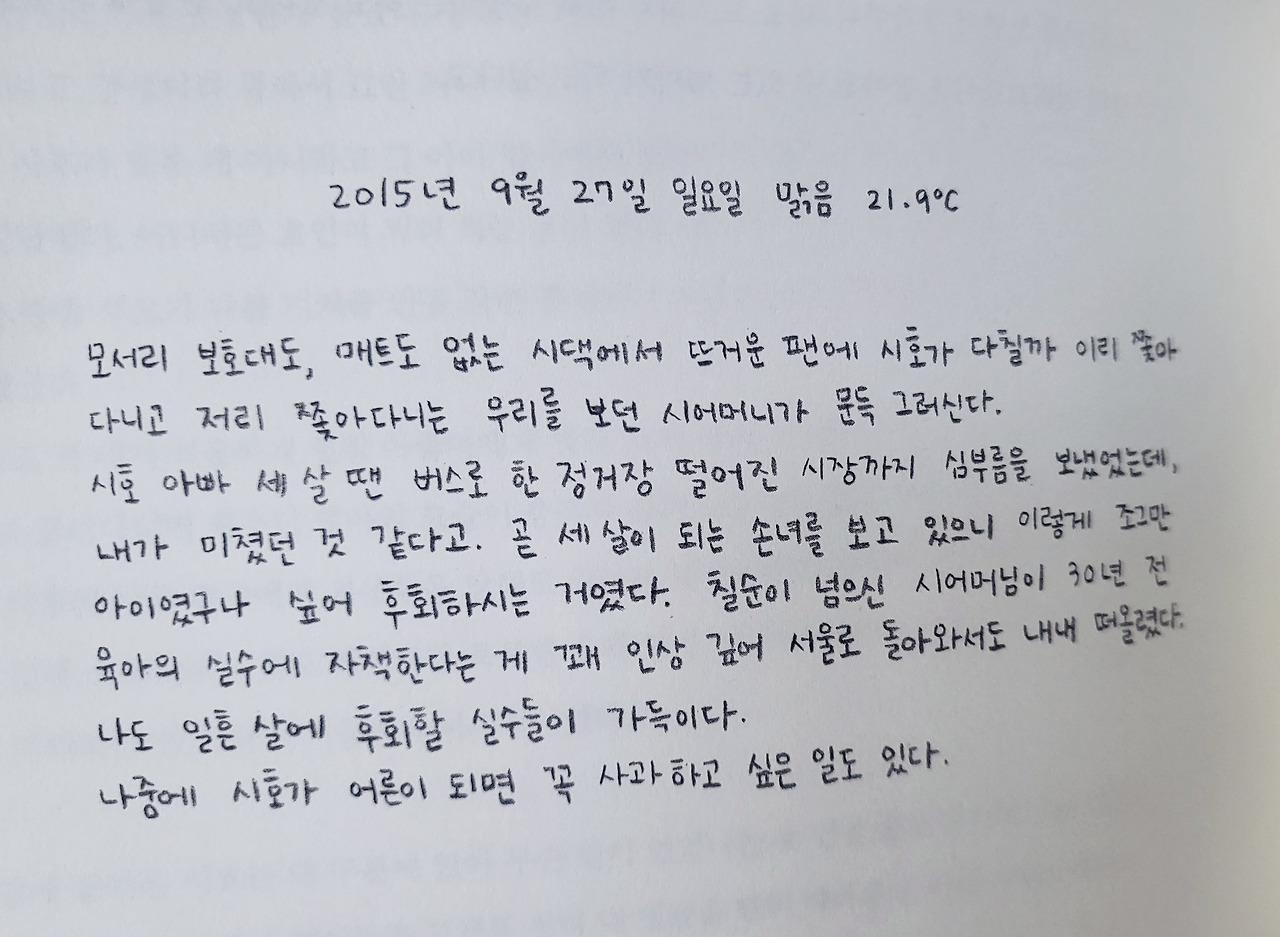 2015년 9월 27일 일요일 맑음 21.9℃
모서리 보호대도, 매트도 없는 시댁에서 뜨거운 팬에 시호가 다칠까 이리 쫓아
다니고 저리 쫓아다니는 우리를 보던 시어머니가 문득 그러신다.
시호 아빠 세 살 땐 버스로 한 정거장 떨어진 시장까지 심부름을 보냈었는데,
내가 미쳤던 것 같다고. 곧 세 살이 되는 손녀를 보고 있으니 이렇게 조그만
아이였구나 싶어 후회하시는 거였다. 칠순이 넘으신 시어머님이 30년 전
육아의 실수에 자책한다는 게 꽤 인상 깊어 서울로 돌아와서도 내내 떠올렸다.
나도 일흔 살에 후회할 실수들이 가득이다.
나중에 시호가 어른이 되면 꼭 사과하고 싶은 일도 있다.